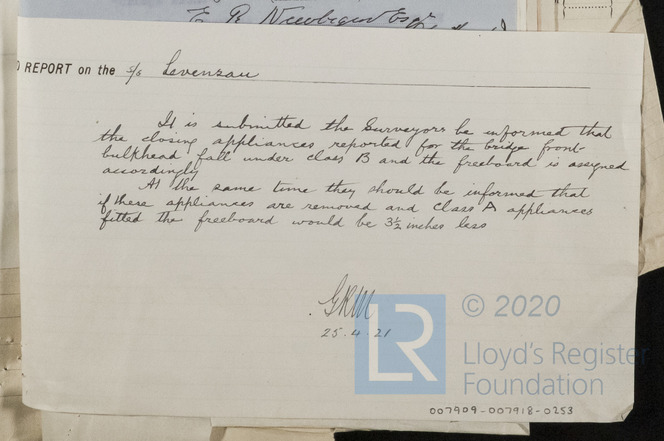 E. R. Newbigin Esq
REPORT on the s/s Levenzau
It is submitted the Surveyors be informed that
the closing appliances reported for the bridge front
bulkhead fall under class B and the freeboard is assigned
accordingly
At the same time they should be informed that
if these appliances are removed and Class A appliances
fitted the freeboard would be 3½ inches less
GRM
25.4.21
LR
© 2020
Lloyd's Register
Foundation
007909-007918-0253